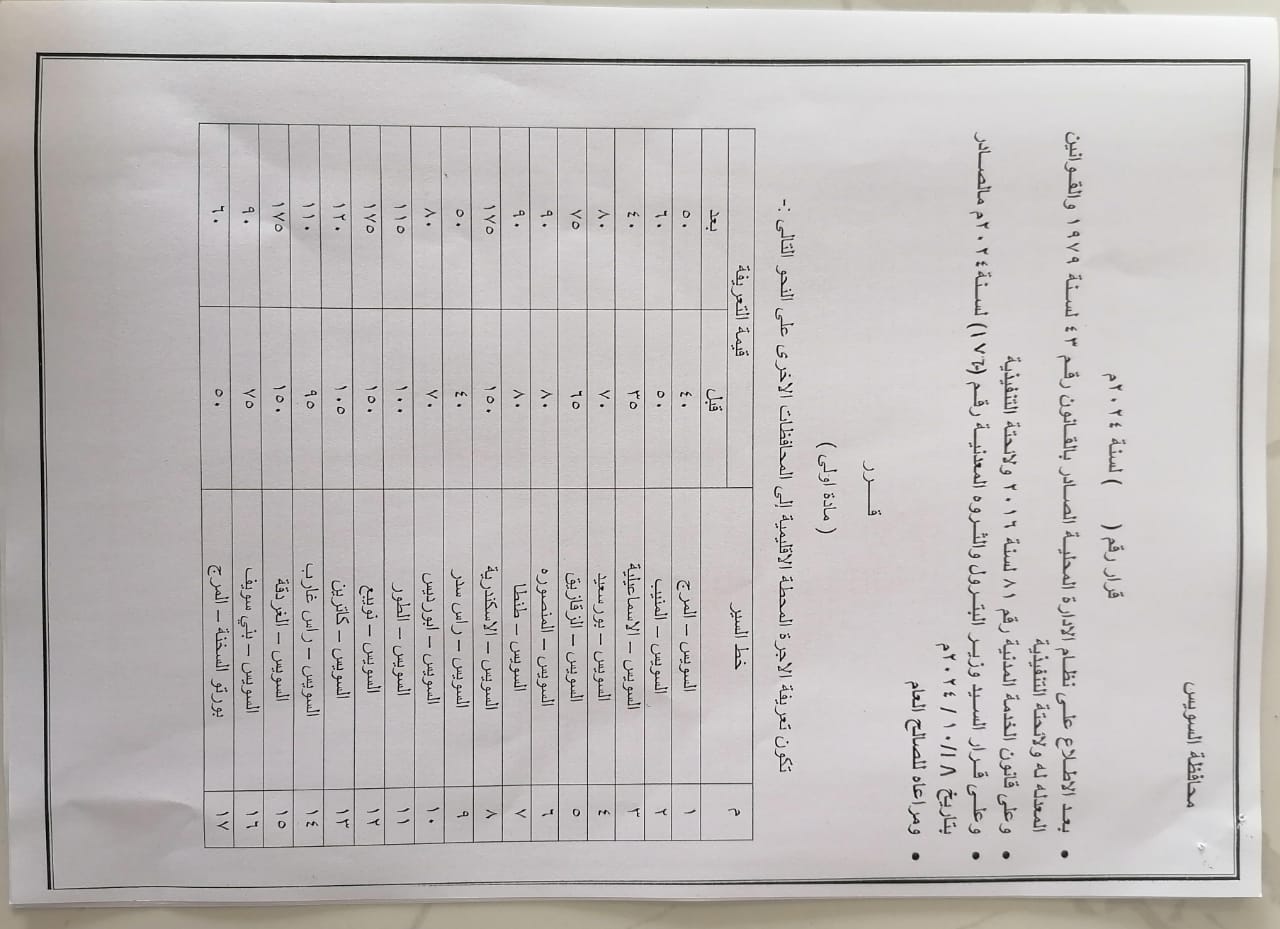 محافظة السويس
قرار رقم (      ) لسنة ٢٠٢٤م
• بعد الاطلاع على نظام الادارة المحلية الصادر بالقانون رقم ٤٣ لسنة ١٩٧٩ والقوانين
المعدله له ولائحتة التنفيذية
• وعلى قانون الخدمة المدنية رقم ٨١ لسنة ٢٠١٦ ولائحتة التنفيذية
• وعلى قرار السيد وزير البترول والثروه المعدنية رقم (١٧٦) لسنة٢٠٢٤م مالصادر
بتاريخ ١٨/ ١٠ / ٢٠٢٤م
• ومراعاه للصالح العام
قـــرر
( مادة اولى )
تكون تعريفة الاجرة المحطة الاقليمية إلى المحافظات الاخرى على النحو التالى :-
م خط السير قيمة التعريفة
قبل بعد
١ السويس – المرج ٤٠ ٥٠
٢ السويس – المنيب ٥٠ ٦٠
٣ السويس – الاسماعيلية ٣٥ ٤٠
٤ السويس – بورسعيد ٧٠ ٨٠
٥ السويس – الزقازيق ٦٥ ٧٥
٦ السويس – المنصوره ٨٠ ٩٠
٧ السويس – طنطا ٨٠ ٩٠
٨ السويس – الاسكندرية ١٥٠ ١٧٥
٩ السويس – راس سدر ٤٠ ٥٠
١٠ السويس – ابورديس ٧٠ ٨٠
١١ السويس – الطور ١٠٠ ١١٥
١٢ السويس – نويبع ١٥٠ ١٧٥
١٣ السويس – كاترين ١٠٥ ١٢٠
١٤ السويس – راس غارب ٩٥ ١١٠
١٥ السويس – الغردقة ١٥٠ ١٧٥
١٦ السويس – بني سويف ٧٥ ٩٠
١٧ بورتو السخنة – المرج ٥٠ ٦٠